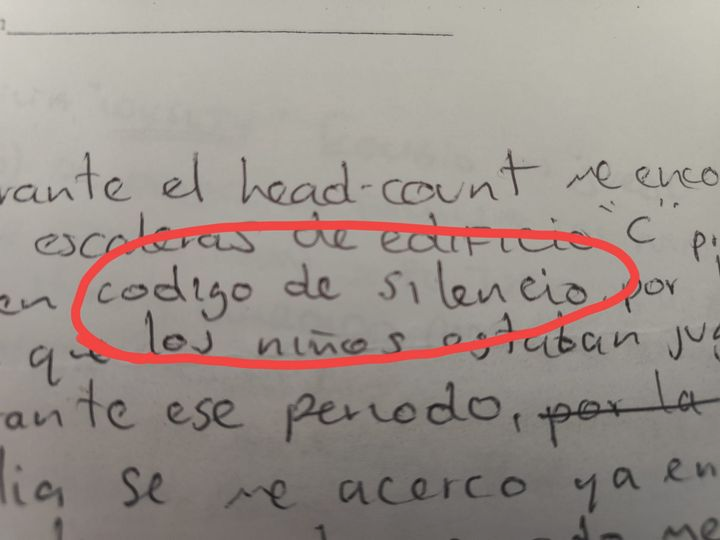 rante el head-count me enco
escaleras de edificio "C" pi
en codigo de silencio, por
que los niños estaban jug
ante ese periodo, por la
dia se me acerco ya en
me